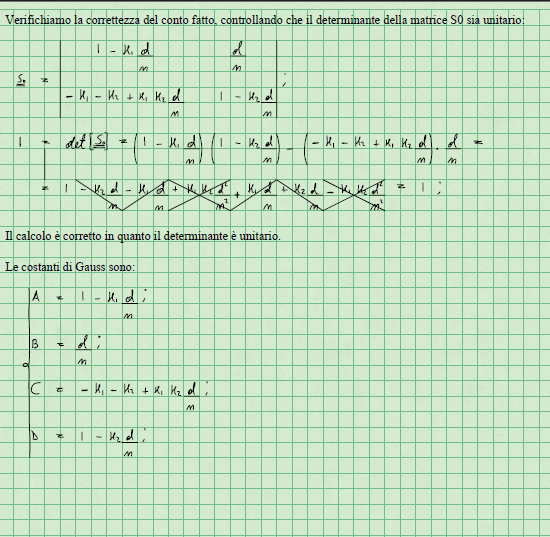 Verifichiamo la correttezza del conto fatto, controllando che il determinante della matrice S0 sia unitario:
S₀ = | 1 - K₁ d/n    d/n |
| -K₁ - K₂ + K₁ K₂ d/n    1 - K₂ d/n | ;
1 = det[S₀] = (1 - K₁ d/n) (1 - K₂ d/n) - (-K₁ - K₂ + K₁ K₂ d/n) · d/n =
= 1 - K₂ d/n - K₁ d/n + K₁ K₂ d²/n² + K₁ d/n + K₂ d/n - K₁ K₂ d²/n² = 1 ;
Il calcolo è corretto in quanto il determinante è unitario.
Le costanti di Gauss sono:
A = 1 - K₁ d/n ;
B = d/n ;
C = -K₁ - K₂ + K₁ K₂ d/n ;
D = 1 - K₂ d/n ;